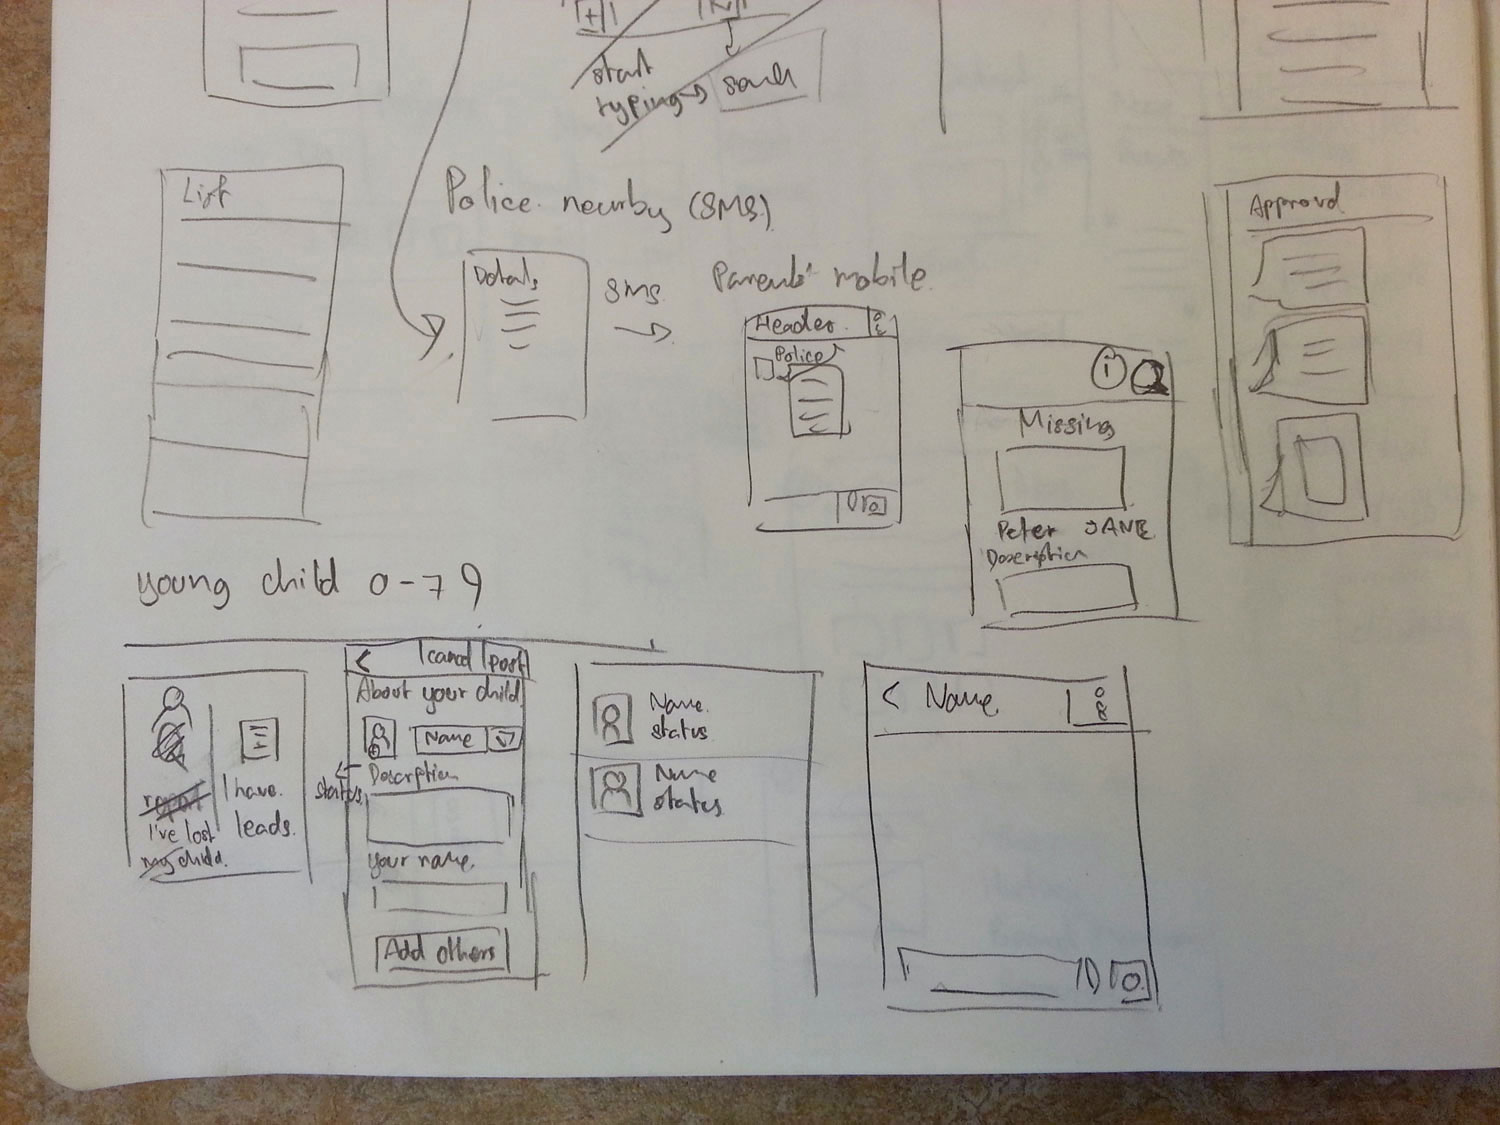 start
typing → send
List
Police nearby (SMS)
Details
SMS
Parents' mobile
Header
Police
Approved
i
Missing
Peter JANE
Description
young child 0-7 9
I've lost
my child.
I have
leads.
< cancel post
About your child
Name
Description
status
your name.
Add others
Name
status
Name
status
< Name